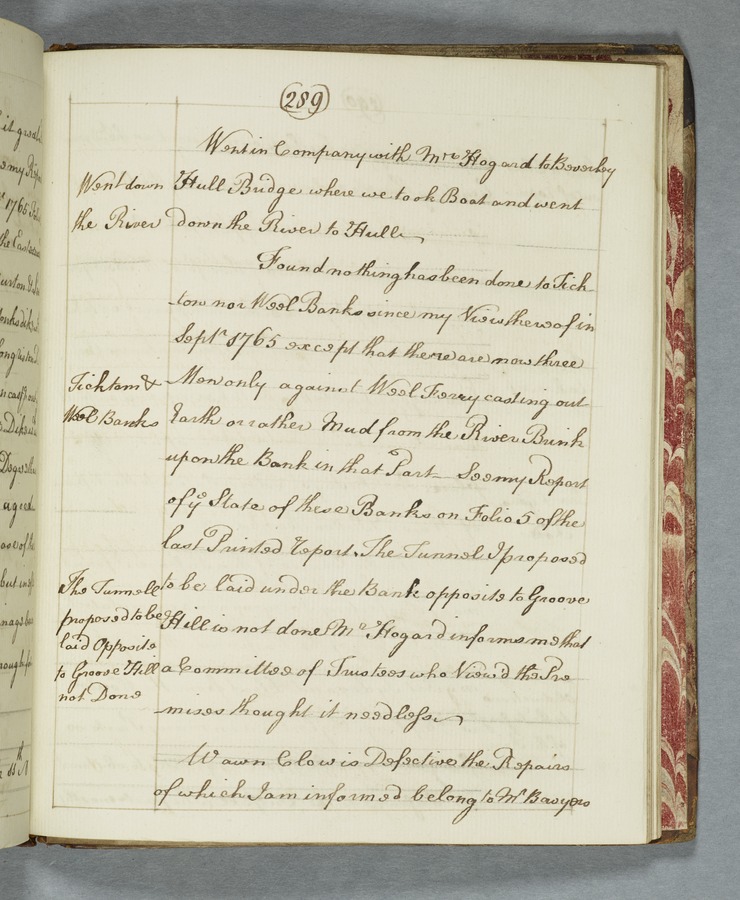 (289)
Went in Company with Mr. Hogard to Beverley
Went down
Hull Bridge where we took Boat and went
the River
down the River to Hull
Found nothing has been done to Tick-
ton nor Weel Banks since my View thereof in
Septr. 1765 except that there are now three
Ticktom &
Men only against Weel Ferry casting out
Weel Banks
Earth or rather Mud from the River Brink
upon the Bank in that Part — See my Report
of ye State of these Banks on Folio 5 of the
last Printed Report. The Tunnel I proposed
The Tunnell
to be laid under the Bank opposite to Groove
proposed to be
Hill is not done Mr. Hogard informs me that
laid Opposite
to Groove Hill
a Committee of Trustees who View'd the Pre
not Done
mises thought it needless
Wawn Clow is Defective the Repairs
of which I am informed belong to Mr. Bawyers
my Repo
1765